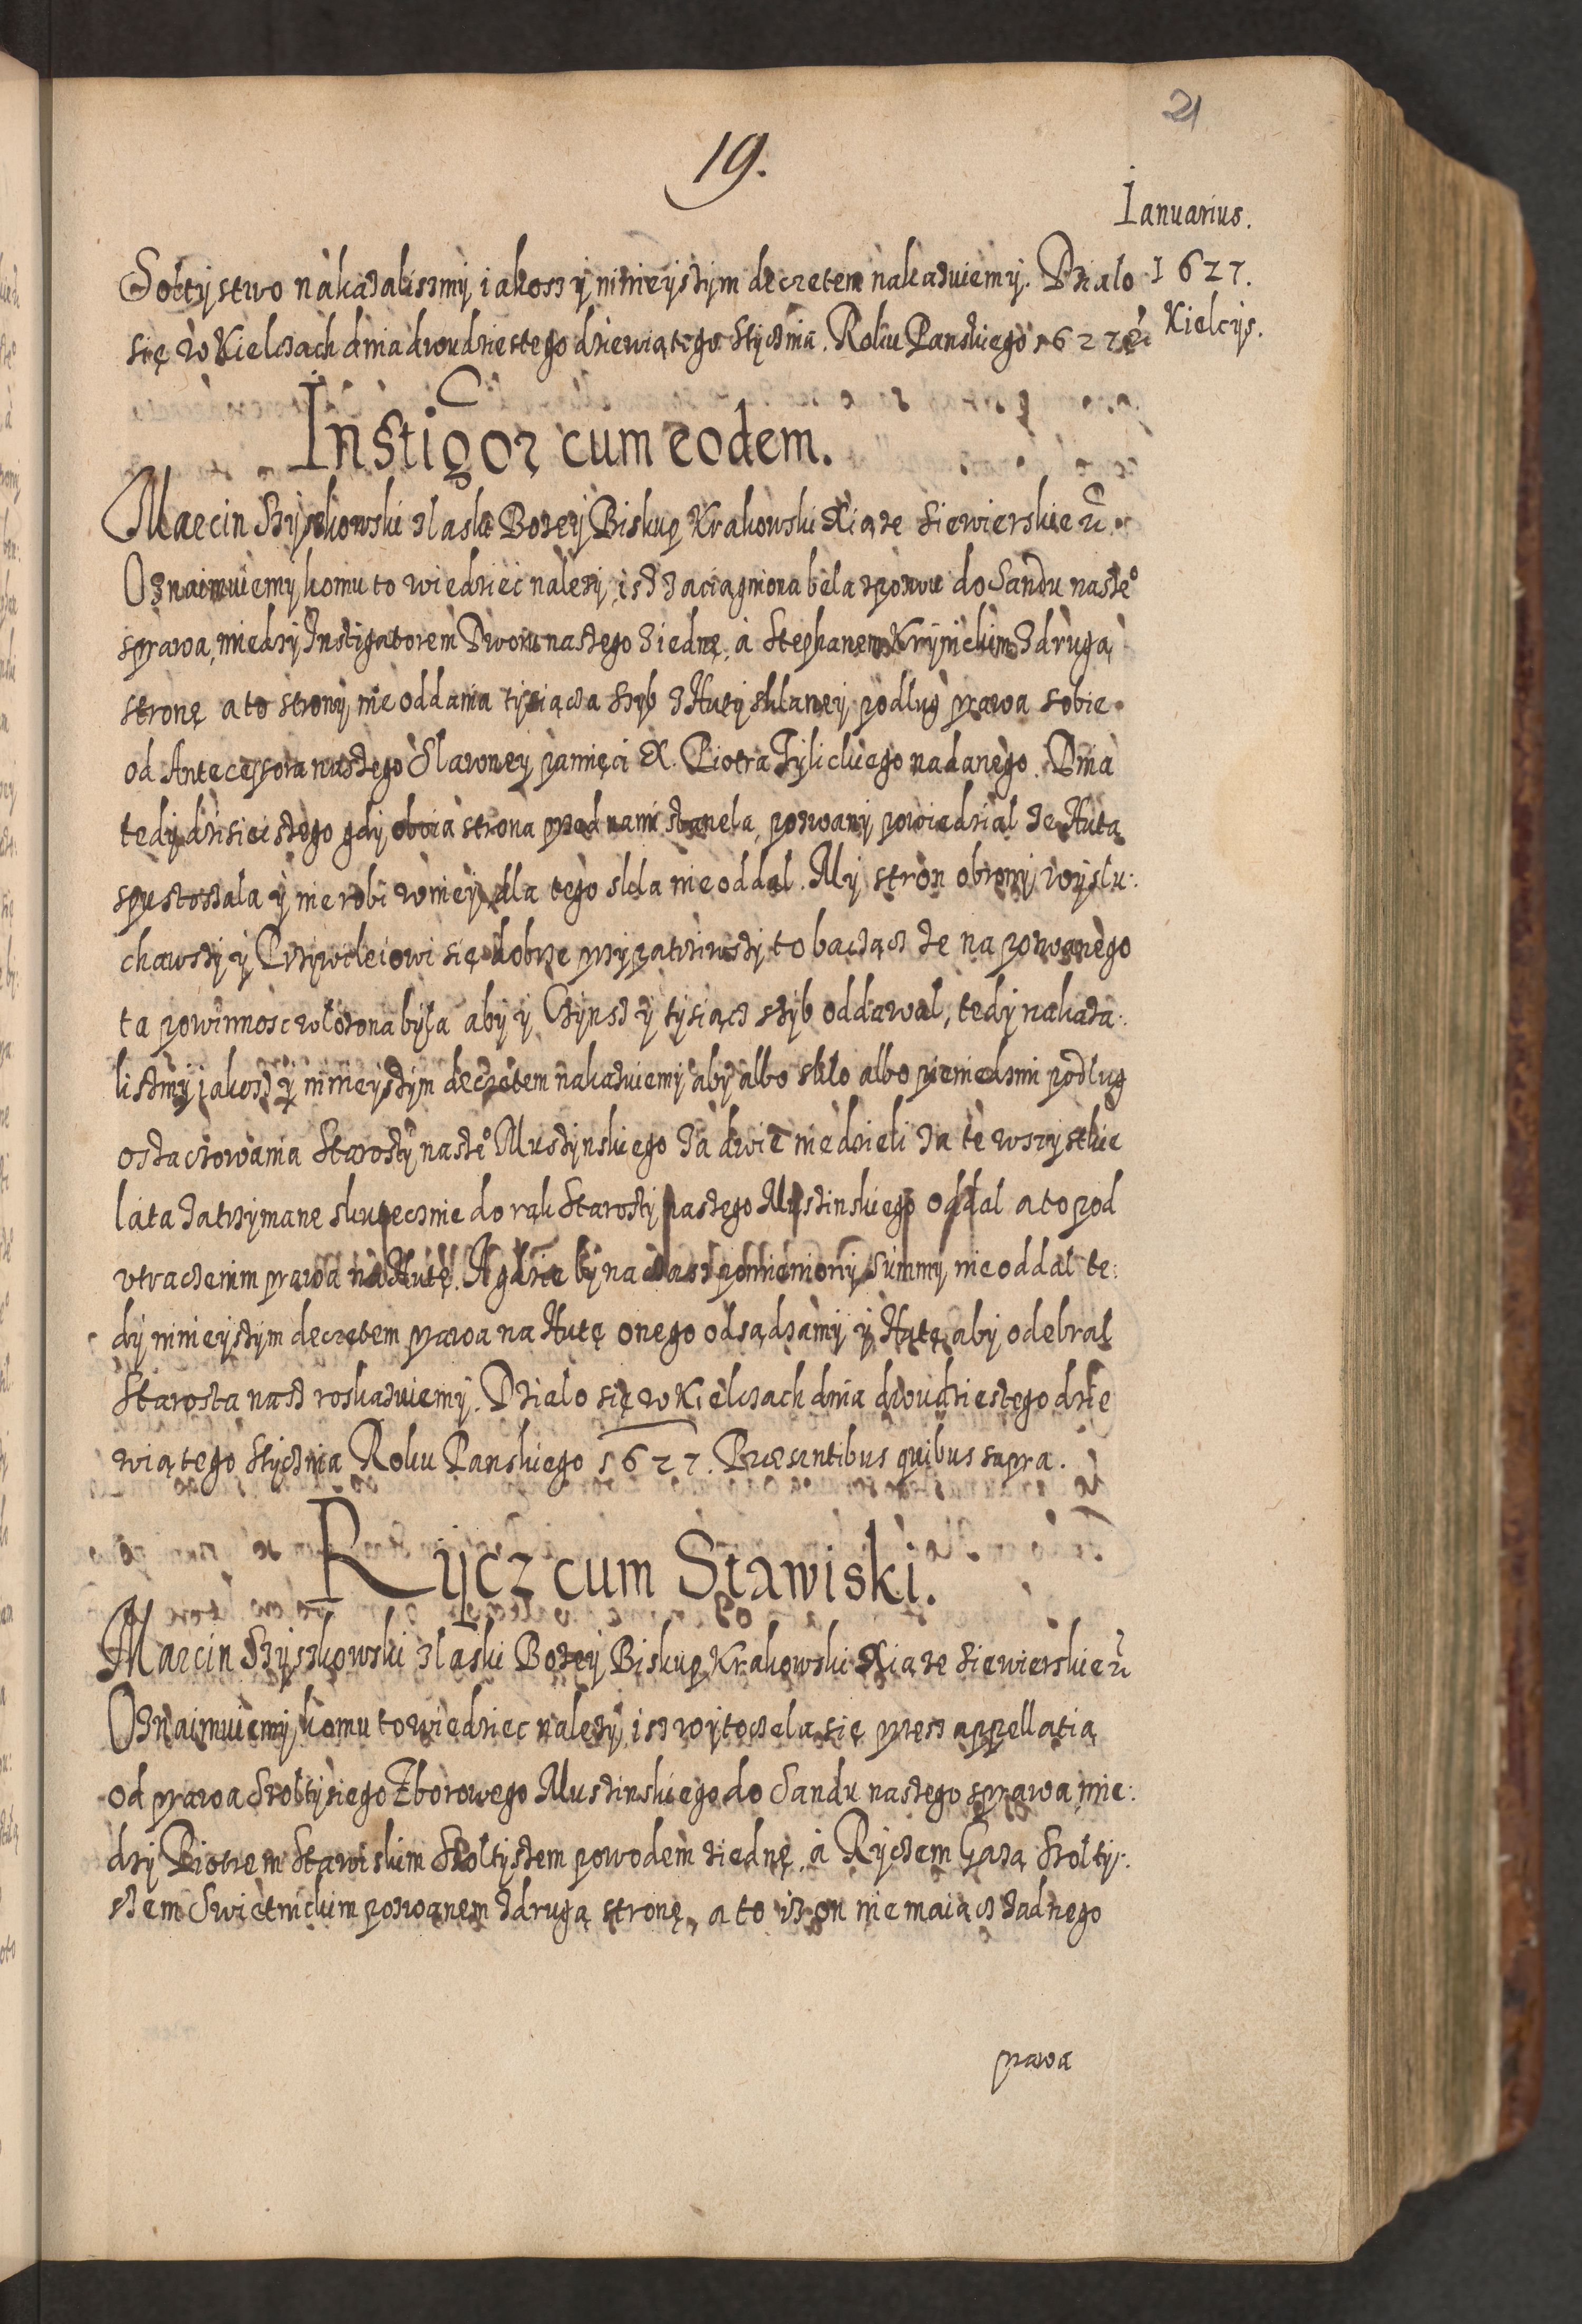 21
19.
Ianuarius.
1627.
Kielcÿs.
Sołtÿstwo nakazalismÿ iakosz ÿ ninieÿszÿm decretem nakazuiemÿ. Działo
się w Kielczach dnia dwudziestego dziewiątego Stÿcznia. Roku Panskiego 1627
Instigor cum eodem.
Marcin Szÿszkowski z łaski Bozeÿ Biskup Krakowski Xiąze Siewierskie
Oznaimuiemÿ komu to wiedzieć nalezÿ, isz zaciągniona bela do Sandu nasze°
sprawa, miedzÿ Instigatorem Dworu naszego z iednę, a Stephanem Krÿnickim z drugą
stronę a to stronÿ nie oddania tÿsiącza szÿb z Hutÿ sklaneÿ podlug prawa sobie
od Antecessora naszego Sławneÿ pamięci X. Piotra Tÿlickiego nadanego. Dnia
tedÿ dzisieiszego gdÿ oboia strona przed nami stanela, pozwanÿ powiedział ze Huta
spustoszala ÿ nie robi w nieÿ, dla tego skla nie oddal. Mÿ stron obronÿ wÿslu:
chawszÿ ÿ Przÿwileiowi się dobrze przÿpatrziwszÿ to bacząc ze na pozwanego
ta powinnosc wlozona bÿla abÿ ÿ Czÿnsz ÿ tÿsiącz szÿb oddawal, tedÿ nakaza:
liszmÿ iakosz ÿ ninieÿszÿm decretem nakazuiemÿ abÿ albo sklo albo pieniedzmi podlug
oszaczowania Starostÿ nasze° Muszÿnskiego za dwie niedzieli za te wszÿstkie
lata zatrzÿmane skutecznie do rąk Starostÿ naszego Muszinskiego oddal a to pod
utraczenim prawa na Hutę. A gdzie bÿ na czasz pomienionÿ Summÿ nie oddal te:
dÿ ninieÿszÿm decretem prawa na Hutę onego odsądzamÿ ÿ Hutę abÿ odebral
Starosta nasz roskazuiemÿ. Dzialo się w Kielczach dnia dwudziestego dzie
wiątego Stÿcznia Roku Panskiego 1627. Præsentibus quibus supra.
Rÿcz cum Stawiski.
Marcin Szÿszkowski z łaski Bozeÿ Biskup Krakowski Xiąze Siewierskie
Oznaimuiemÿ komu to wiedziec nalezÿ, isz wÿtoczela się przesz appellatią
od prawa Szoltÿsiego Zborowego Muszinskiego do Sandu naszego sprawa mie:
dzÿ Piotrem Stawiskim Szoltÿszem powodem z iednę, a Rÿczem Gazą Szoltÿ:
szem Swiętnickim pozwanem z drugą stronę, a to isz on nie maiącz zadnego
prawa